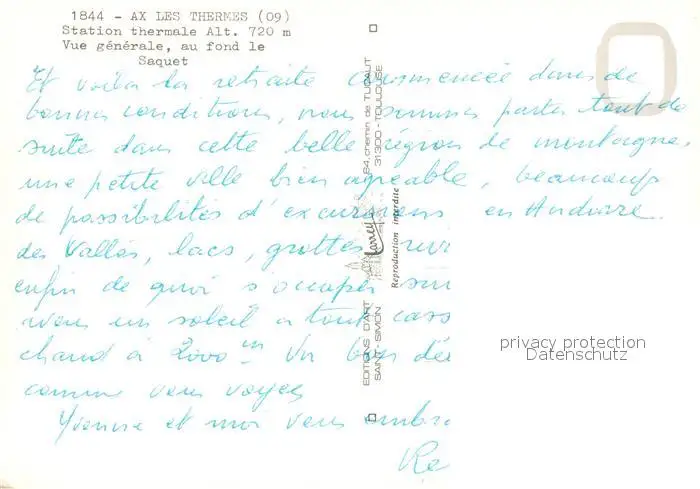 1844 - AX LES THERMES (09)
Station thermale Alt. 720 m
Vue générale, au fond le
Saquet
Et voilà la retraite commencée dans de
bonnes conditions, nous sommes partis tout de
suite dans cette belle région de montagne,
une petite ville bien agréable, beaucoup
de possibilités d'excursions en Andorre
des Vallées, lacs, grottes
enfin de quoi s'occuper
un soleil a tout cass
chaud à 2000 m Un bon dé
comme vous voyez
Yvonne et moi vous embr
Re
EDITIONS D'ART
SAINT-SIMON
larrey
84, chemin de TUCAUT
31300 - TOULOUSE
Reproduction interdite
privacy protection
Datenschutz